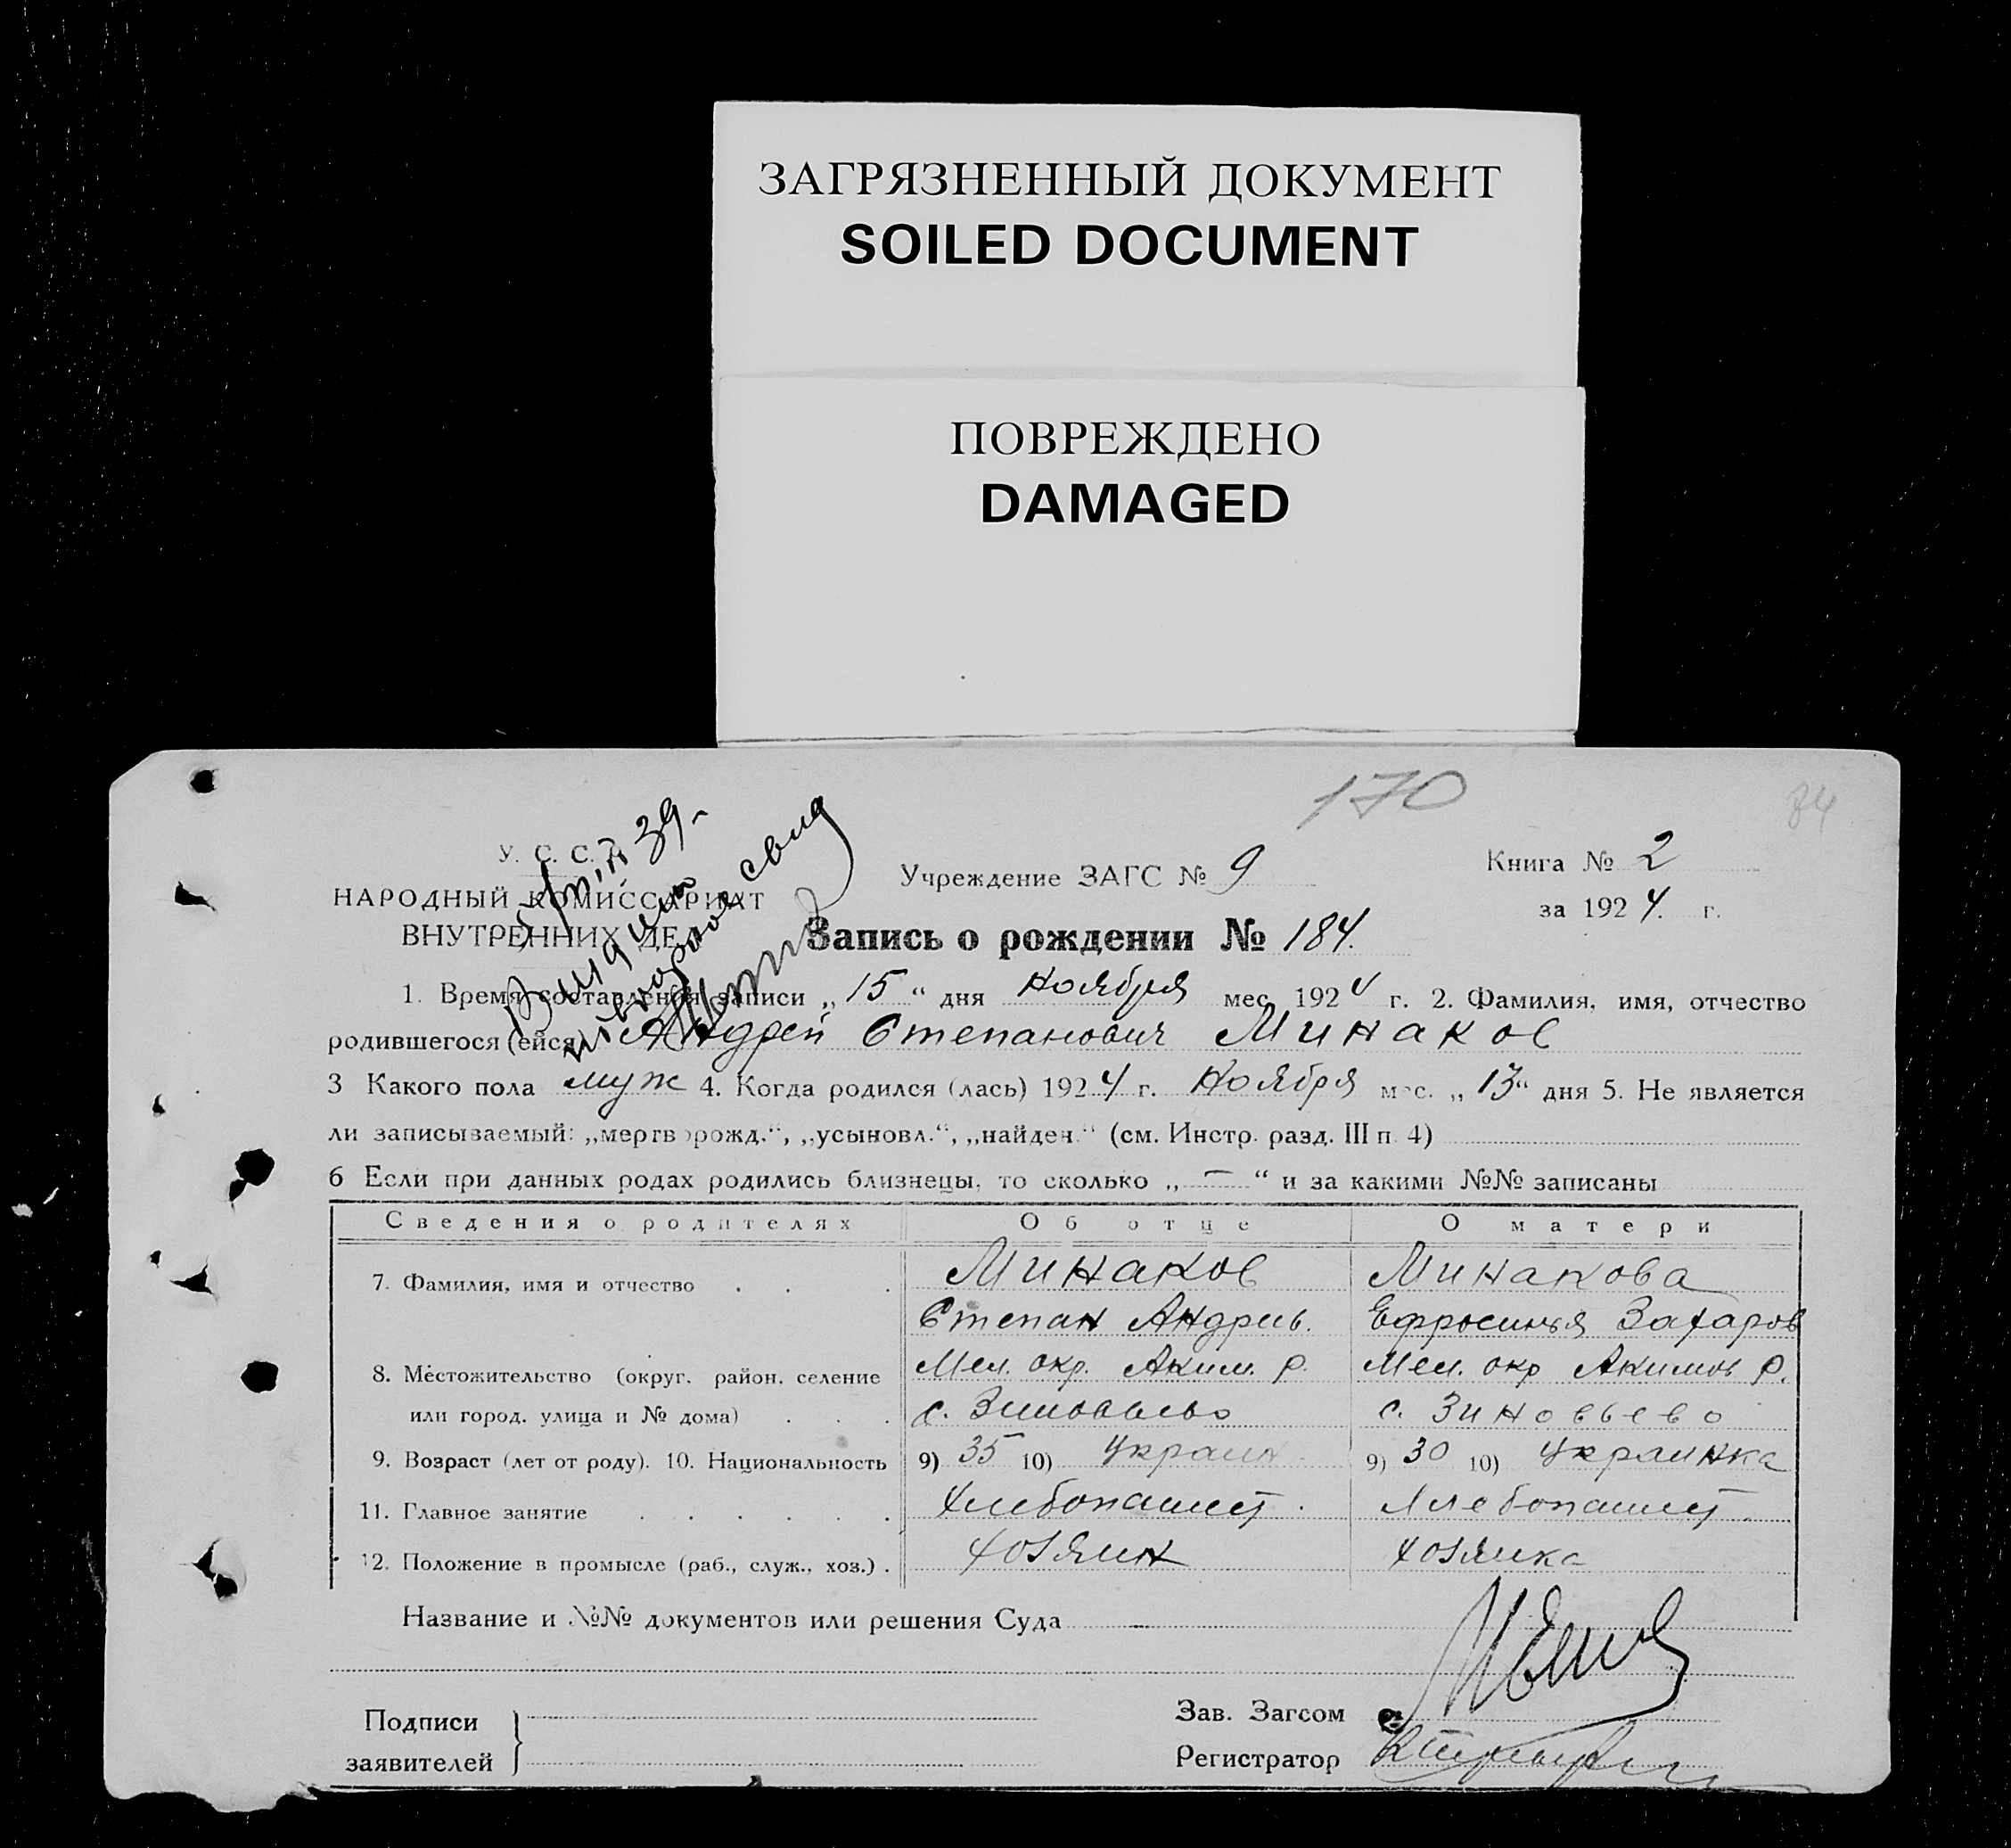 ЗАГРЯЗНЕННЫЙ ДОКУМЕНТ
SOILED DOCUMENT
ПОВРЕЖДЕНО
DAMAGED
170
84
У. С. С. Р.
НАРОДНЫЙ КОМИССАРИАТ
ВНУТРЕННИХ ДЕЛ
39.
Учреждение ЗАГС № 9
Книга № 2
за 1924. г.
Запись о рождении № 184.
1. Время составления записи „15“ дня Ноября мес. 1924 г. 2. Фамилия, имя, отчество
родившегося (ейся) Андрей Степанович Минаков
3 Какого пола муж 4. Когда родился (лась) 1924 г. Ноября мес. „13“ дня 5. Не является
ли записываемый: „мертворожд.“, „усыновл.“, „найден.“ (см. Инстр. разд. III п. 4)
6 Если при данных родах родились близнецы, то сколько „—“ и за какими №№ записаны
Сведения о родителях Об отце О матери
7. Фамилия, имя и отчество . . . Минаков Минакова
Степан Андрив. Ефросинья Захаров
8. Местожительство (округ, район, селение Мел. окр. Аким. р. Мел. окр Акимов р.
или город, улица и № дома) . . . с. Зиновьево с. Зиновьево
9. Возраст (лет от роду). 10. Национальность 9) 35 10) Украин. 9) 30 10) Украинка
11. Главное занятие . . . . . . Хлебопашест. Хлебопашест.
12. Положение в промысле (раб., служ., хоз.) . Хозяин Хозяика
Название и №№ документов или решения Суда —
Подписи
заявителей
Зав. Загсом
Регистратор